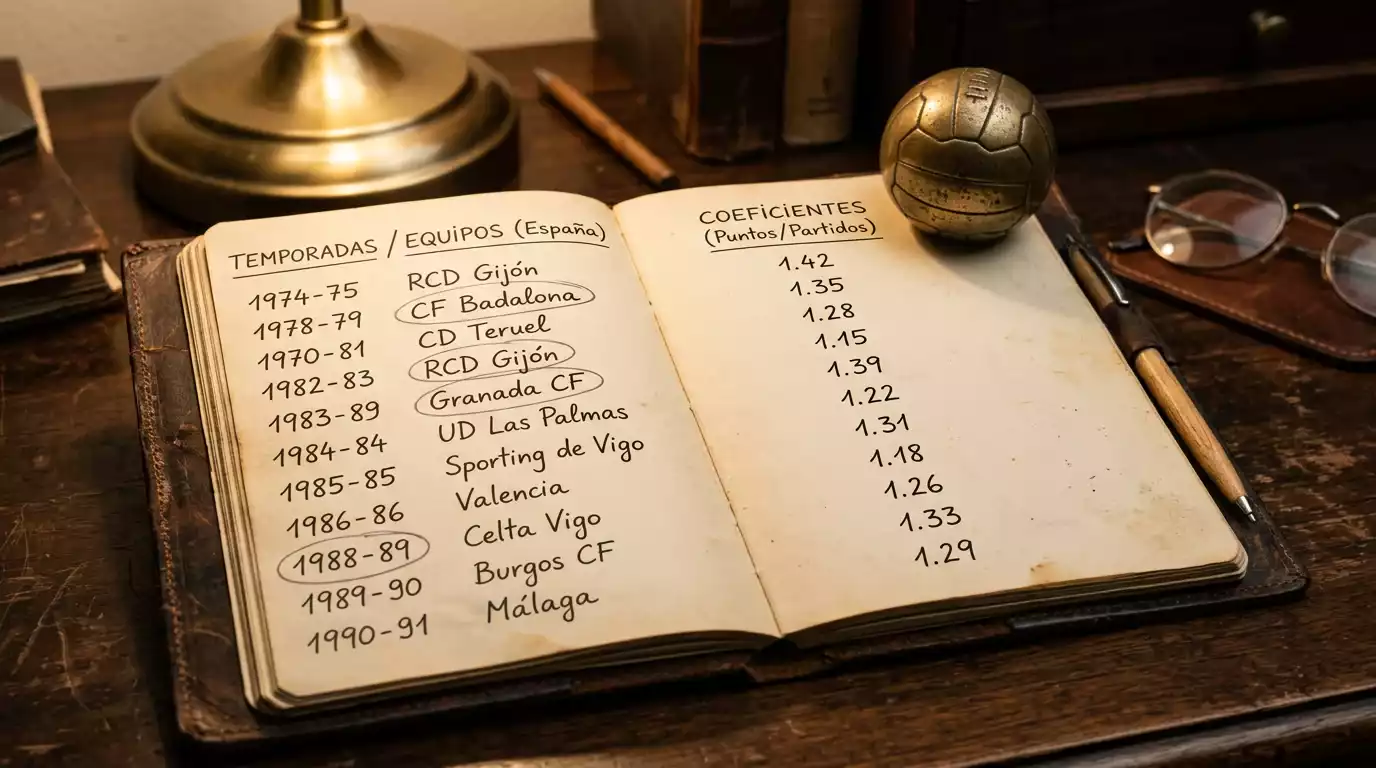 TEMPORADAS / EQUIPOS (España)
1974-75 RCD Gijón
1978-79 CF Badalona
1970-81 CD Teruel
1982-83 RCD Gijón
1983-89 Granada CF
1984-84 UD Las Palmas
1985-85 Sporting de Vigo
1986-86 Valencia
1988-89 Celta Vigo
1989-90 Burgos CF
1990-91 Málaga
COEFICIENTES
(Puntos/Partidos)
1.42
1.35
1.28
1.15
1.39
1.22
1.31
1.18
1.26
1.33
1.29